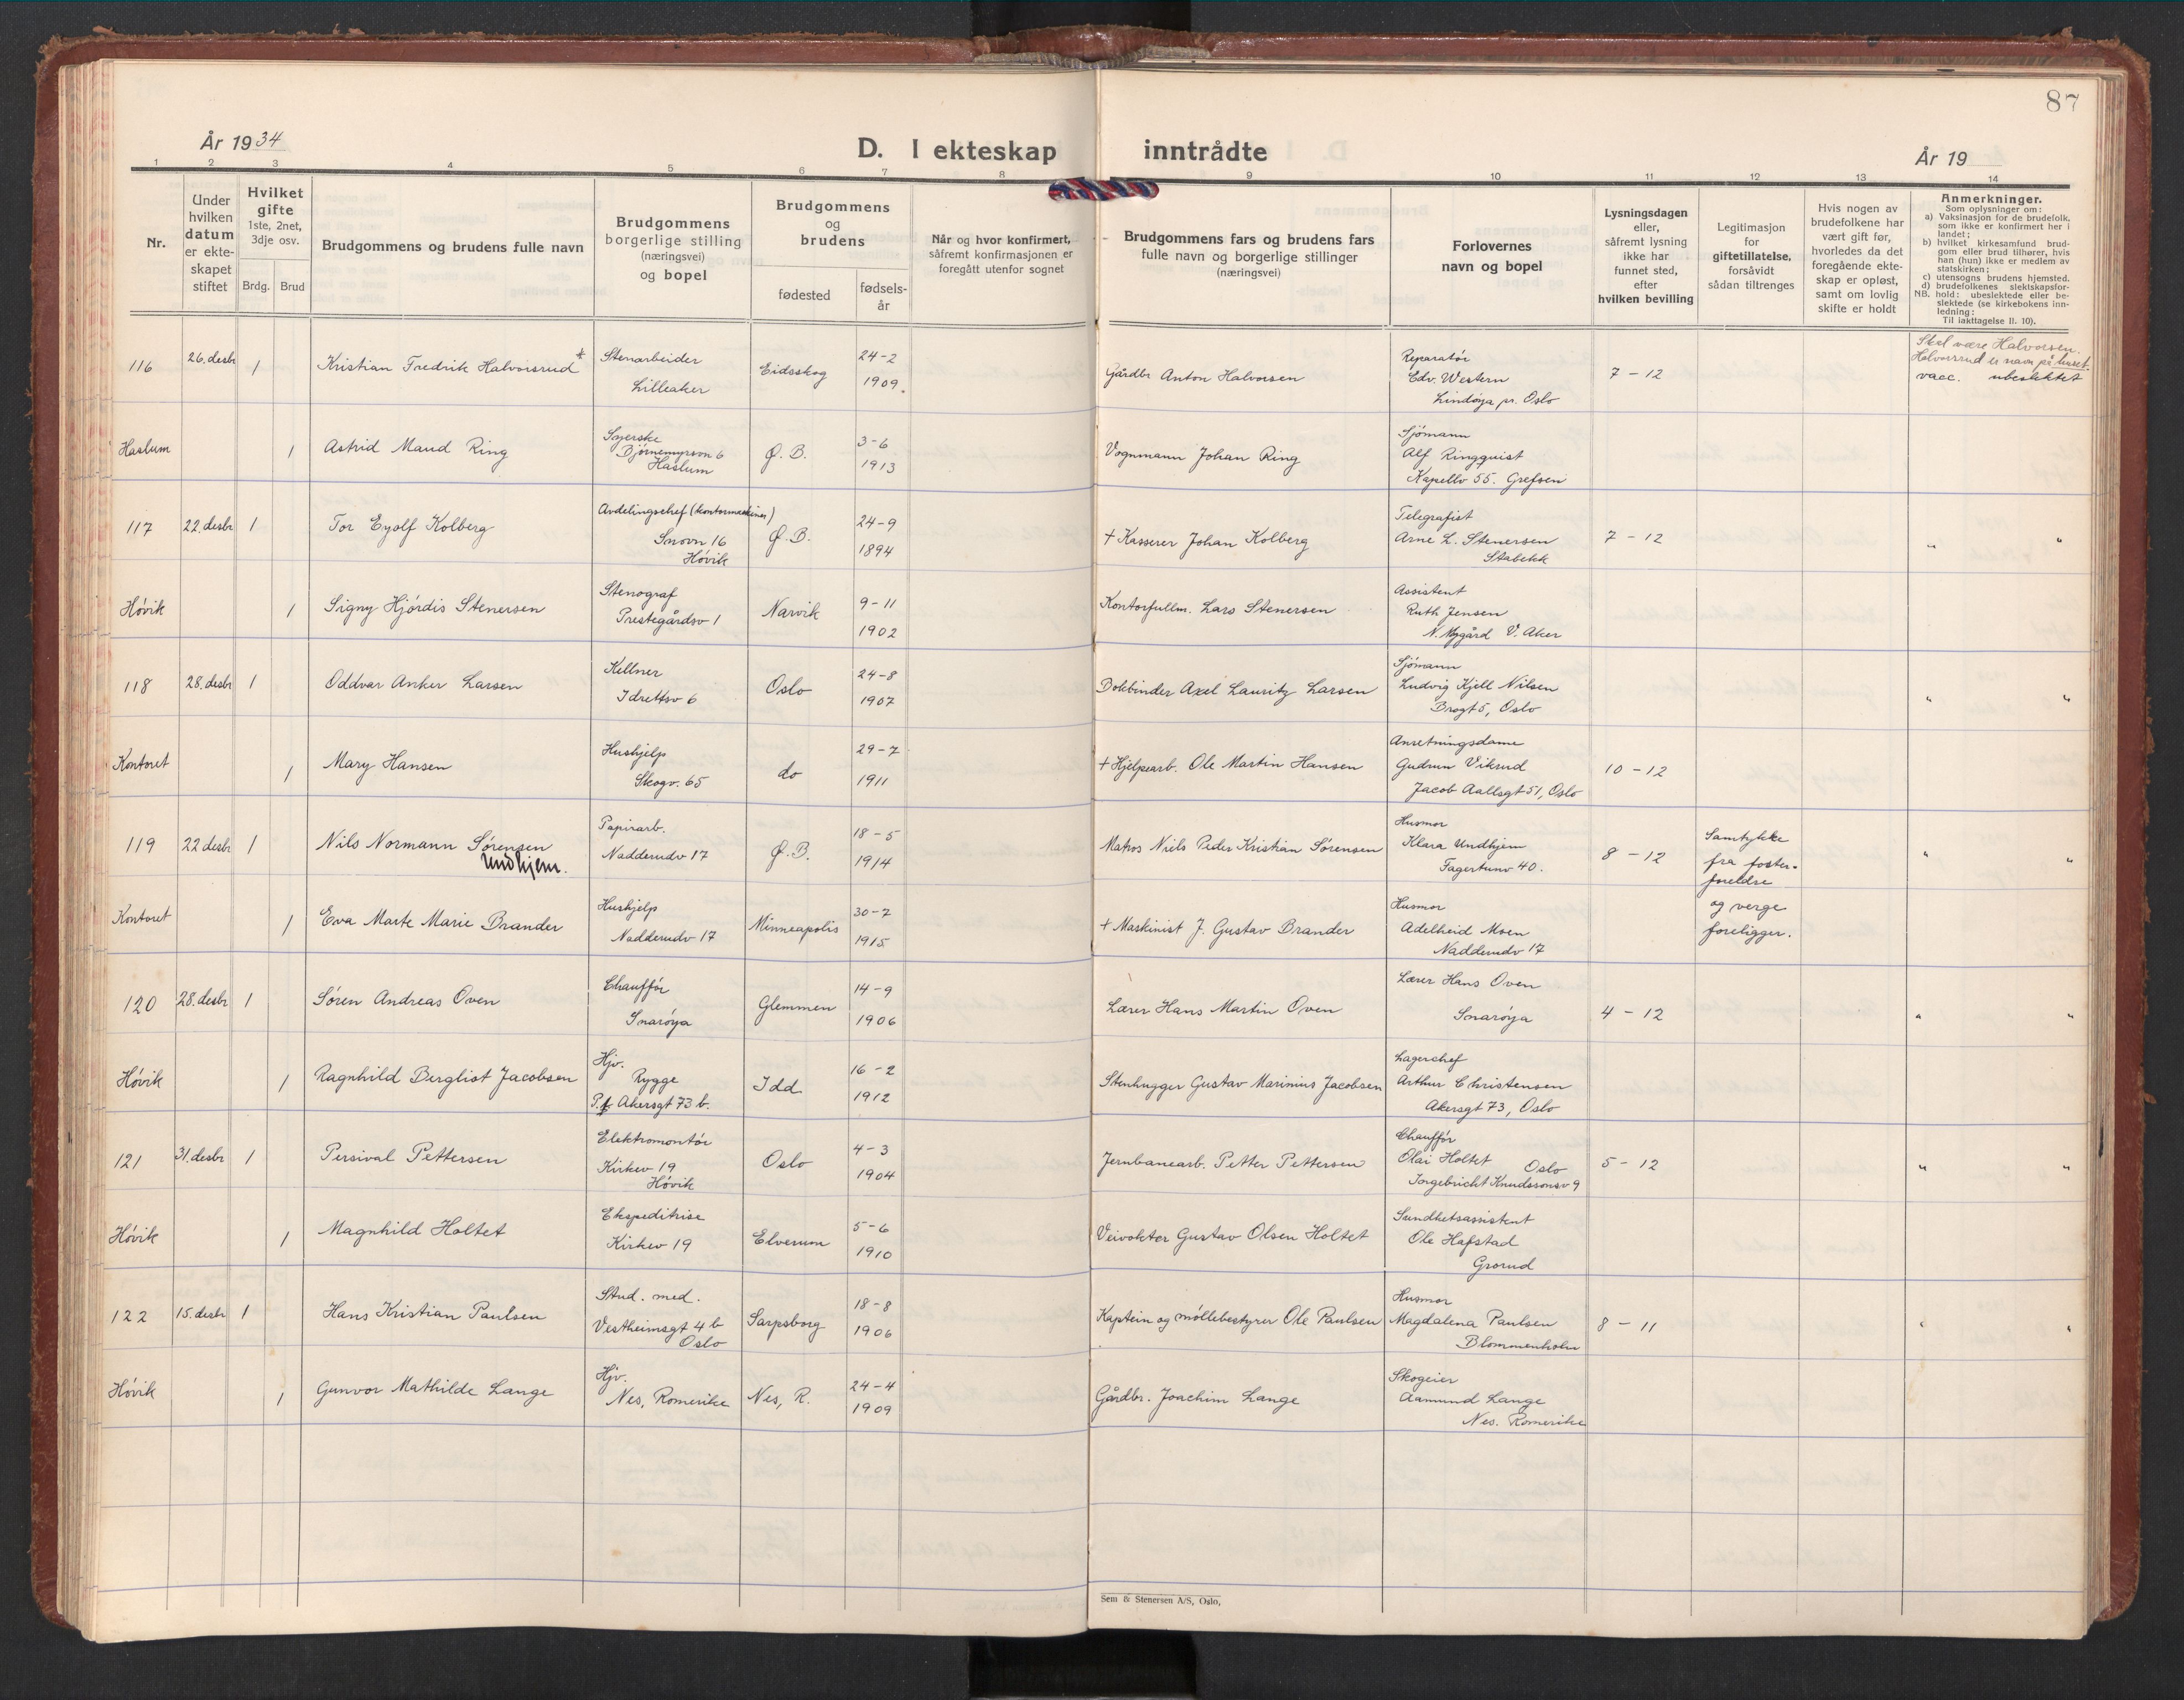 87
År 1934
D. I ekteskap inntrådte
År 19
1 2 3 4 5 6 7 8 9 10 11 12 13 14
Nr.
Under hvilken datum er ekteskapet stiftet
Hvilket gifte 1ste, 2net, 3dje osv.
Brdg. Brud
Brudgommens og brudens fulle navn
Brudgommens borgerlige stilling (næringsvei) og bopel
Brudgommens og brudens
fødested
fødselsår
Når og hvor konfirmert, såfremt konfirmasjonen er foregått utenfor sognet
Brudgommens fars og brudens fars fulle navn og borgerlige stillinger (næringsvei)
Forlovernes navn og bopel
Lysningsdagen eller, såfremt lysning ikke har funnet sted, efter hvilken bevilling
Legitimasjon for giftetillatelse, forsåvidt sådan tiltrenges
Hvis nogen av brudefolkene har vært gift før, hvorledes da det foregående ekteskap er opløst, samt om lovlig skifte er holdt
Anmerkninger.
Som oplysninger om:
a) Vaksinasjon for de brudefolk, som ikke er konfirmert her i landet;
b) hvilket kirkesamfund brudgom eller brud tilhører, hvis han (hun) ikke er medlem av statskirken;
c) utensogns brudens hjemsted.
d) brudefolkenes slektskapsforhold: ubeslektede eller beslektede (se kirkebokens innledning:
NB. Til iakttagelse II. 10).
116 26. desbr 1 Kristian Fredrik Halvorsrud * Stenarbeider Lilleaker Eidsskog 24-2 1909. Gårdbr Anton Halvorsen Reparatør Edv. Western Lindøya pr. Oslo 7-12 Skal være Halvorsen. Halvorsrud er navn på huset. vacc. ubeslektet
Haslum 1 Astrid Maud Ring Syerske Bjørnemyrsvn 6 Haslum Ø. B. 3-6 1913 Vognmann Johan Ring Sjömann Alf Ringquist Kapellv 55. Grefsen
117 22. desbr 1 Tor Eyolf Kolberg Avdelingschef (kontormaskiner) Snovn 16 Høvik Ø. B. 24-9 1894 + Kasserer Johan Kolberg Telegrafist Arne L. Stenersen Stabekk 7-12 " "
Høvik 1 Signy Hjördis Stenersen Stenograf Prestegårdsv 1 Narvik 9-11 1902 Kontorfullm. Lars Stenersen Assistent Ruth Jensen N. Mygård V. Aker
118 28. desbr 1 Oddvar Anker Larsen Kellner Idrettsv 6 Oslo 24-8 1907 Bokbinder Axel Lauritz Larsen Sjömann Ludvig Kjell Nilsen Brogt 5, Oslo " "
Kontoret 1 Mary Hansen Hushjelp Skogv. 65 do 29-7 1911 + Hjelpearb. Ole Martin Hansen Anretningsdame Gudrun Viksud Jacob Aallsgt 51, Oslo 10-12
119 22 desbr 1 Nils Normann Sørensen Undhjem. Papirarb. Nadderudv 17 Ø. B. 18-5 1914 Matros Niels Peder Kristian Sørensen Husmor Klara Undhjem Fagertunv 40. 8-12 Samtykke fra foster-foreldre " "
Kontoret 1 Eva Marte Marie Brander Hushjelp Nadderudv 17 Minneapolis 30-7 1915 + Maskinist J. Gustav Brander Husmor Adelheid Moen Nadderudv 17 og verge foreligger.
120 28. desbr 1 Søren Andreas Oven Chauffør Snarøya Glemmen 14-9 1906 Lærer Hans Martin Oven Lærer Hans Oven Snarøya 4-12 " "
Høvik 1 Ragnhild Bergliot Jacobsen Hjv. Rygge P.t. Akersgt 73 b. Idd 16-2 1912 Stenhugger Gustav Marinius Jacobsen Lagerchef Arthur Christensen Akersgt 73, Oslo
121 31. desbr 1 Persival Pettersen Elektromontør Kirkev 19 Høvik Oslo 4-3 1904 Jernbanearb. Petter Pettersen Chauffør Olai Holtet Oslo Ingebricht Knudssonsv 9 5-12 " "
Høvik 1 Magnhild Holtet Ekspeditrise Kirkev 19 Elverum 5-6 1910 Veivokter Gustav Olsen Holtet Sundhetsassistent Ole Hafstad Grorud
122 15. desbr 1 Hans Kristian Paulsen Stud. med. Vestheimsgt 4 b Oslo Sarpsborg 18-8 1906 Kaptein og møllebestyrer Ole Paulsen Husmor Magdalena Paulsen Blommenholm 8-11 " "
Høvik 1 Gunvor Mathilde Lange Hjv. Nes, Romerike Nes, R. 24-4 1909 Gårdbr. Joachim Lange Skogeier Aamund Lange Nes. Romerike
Sem & Stenersen A/S, Oslo,